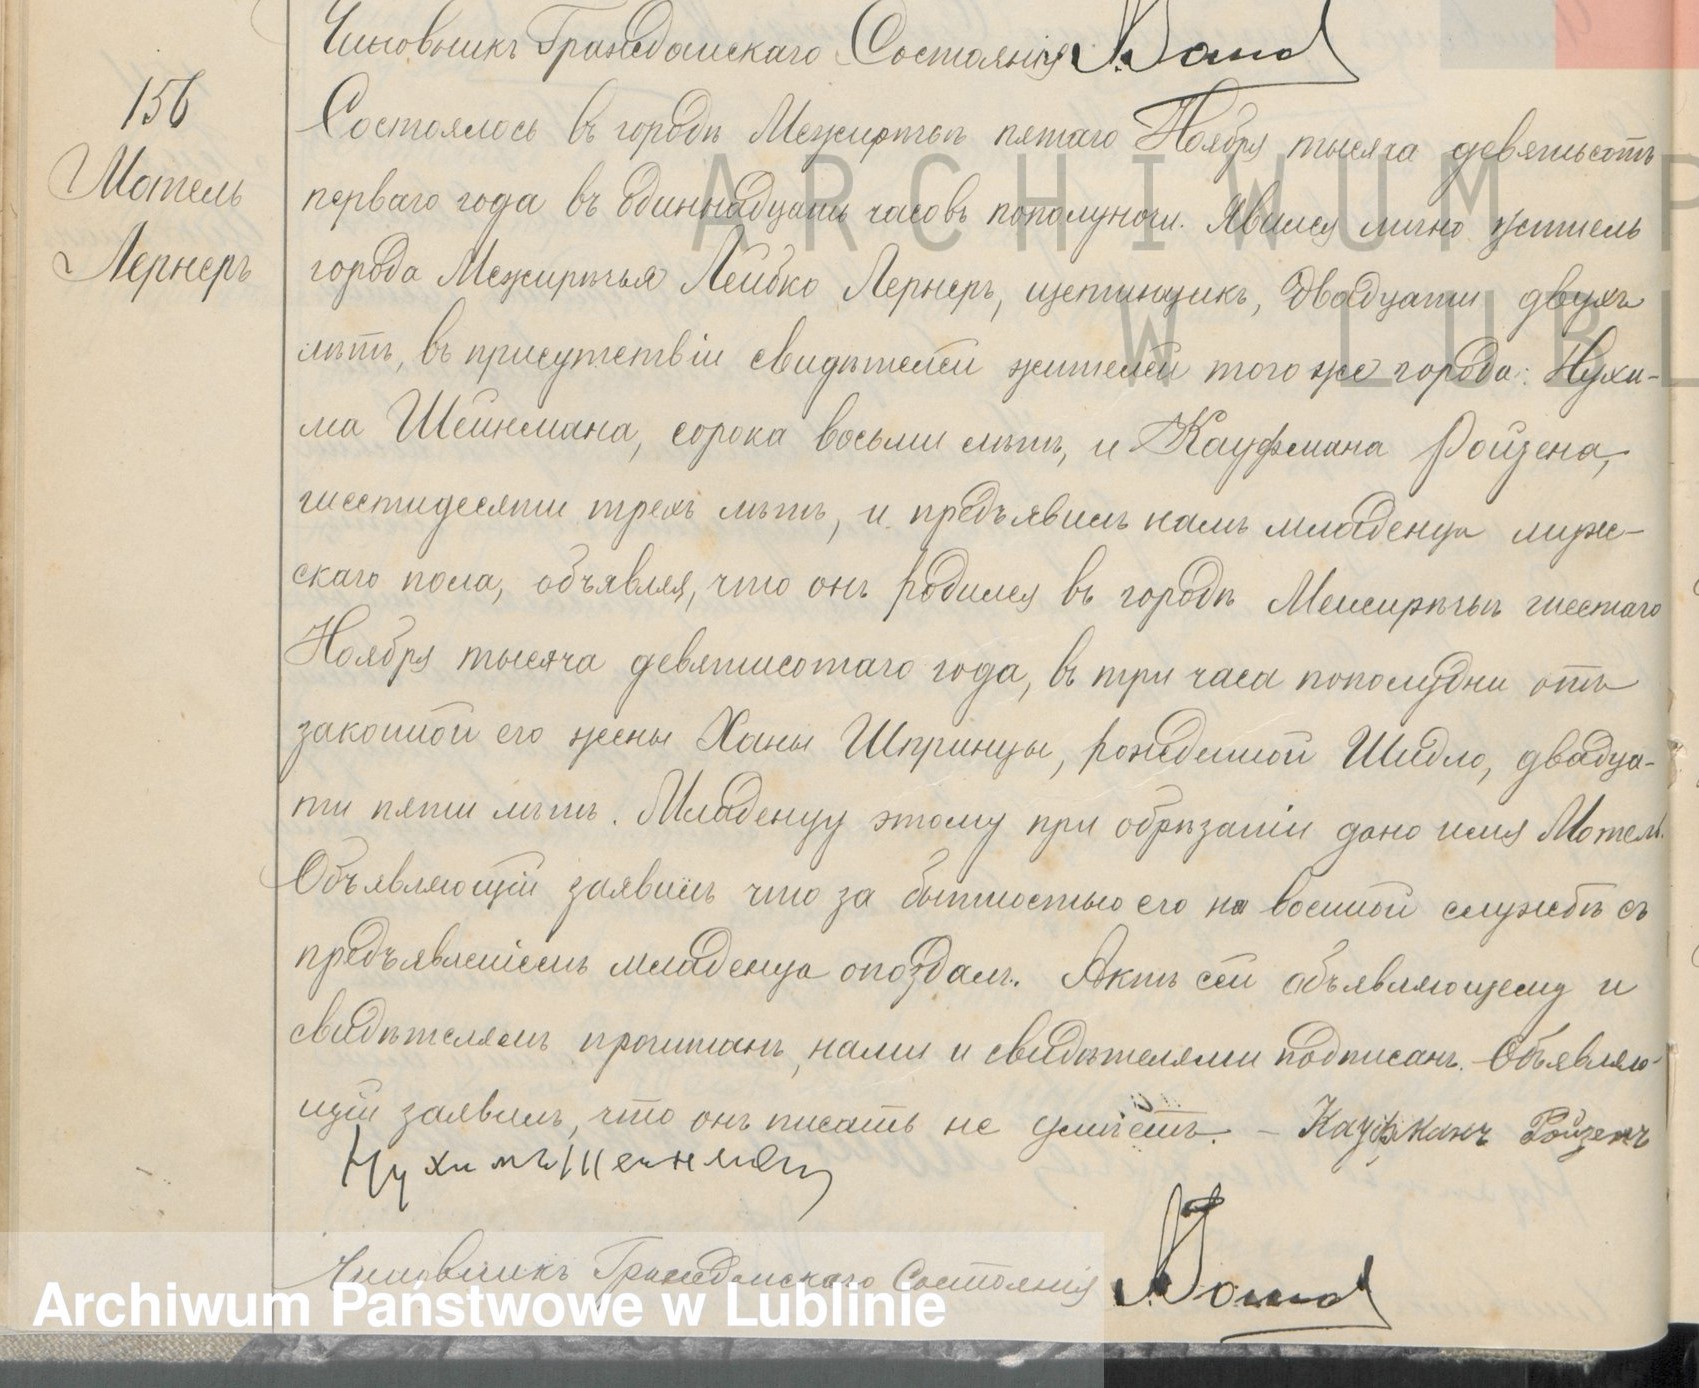 Чиновникъ Гражданскаго Состоянія
156
Мотель
Лернеръ
Состоялось въ городѣ Межирѣчьѣ пятаго Ноября тысяча девятьсотъ
перваго года въ одиннадцать часовъ пополуночи. Явился лично житель
города Межирѣчья Лейбко Лернеръ, щетинщикъ, двадцати двухъ
лѣтъ, въ присутствіи свидѣтелей жителей того же города: Нухи-
ма Шейнмана, сорока восьми лѣтъ, и Кауфмана Ройзена,
шестидесяти трехъ лѣтъ, и предъявилъ намъ младенца муж-
скаго пола, объявляя, что онъ родился въ городѣ Межирѣчьѣ шестаго
Ноября тысяча девятисотаго года, въ три часа пополудни отъ
законной его жены Ханы Шпринцы, рожденной Шидло, двадца-
ти пяти лѣтъ. Младенцу этому при обрѣзаніи дано имя Мотель.
Объявляющій заявилъ что за бытностью его на военной службѣ съ
предъявленіемъ младенца опоздалъ. Актъ сей объявляющему и
свидѣтелямъ прочитанъ, нами и свидѣтелями подписанъ. Объявляю-
щій заявилъ, что онъ писать не умѣетъ. – Кауфманъ Ройзенъ
Нухимъ Шейнман
Чиновникъ Гражданскаго Состоянія
ARCHIWUM P
W LUBL
Archiwum Państwowe w Lublinie